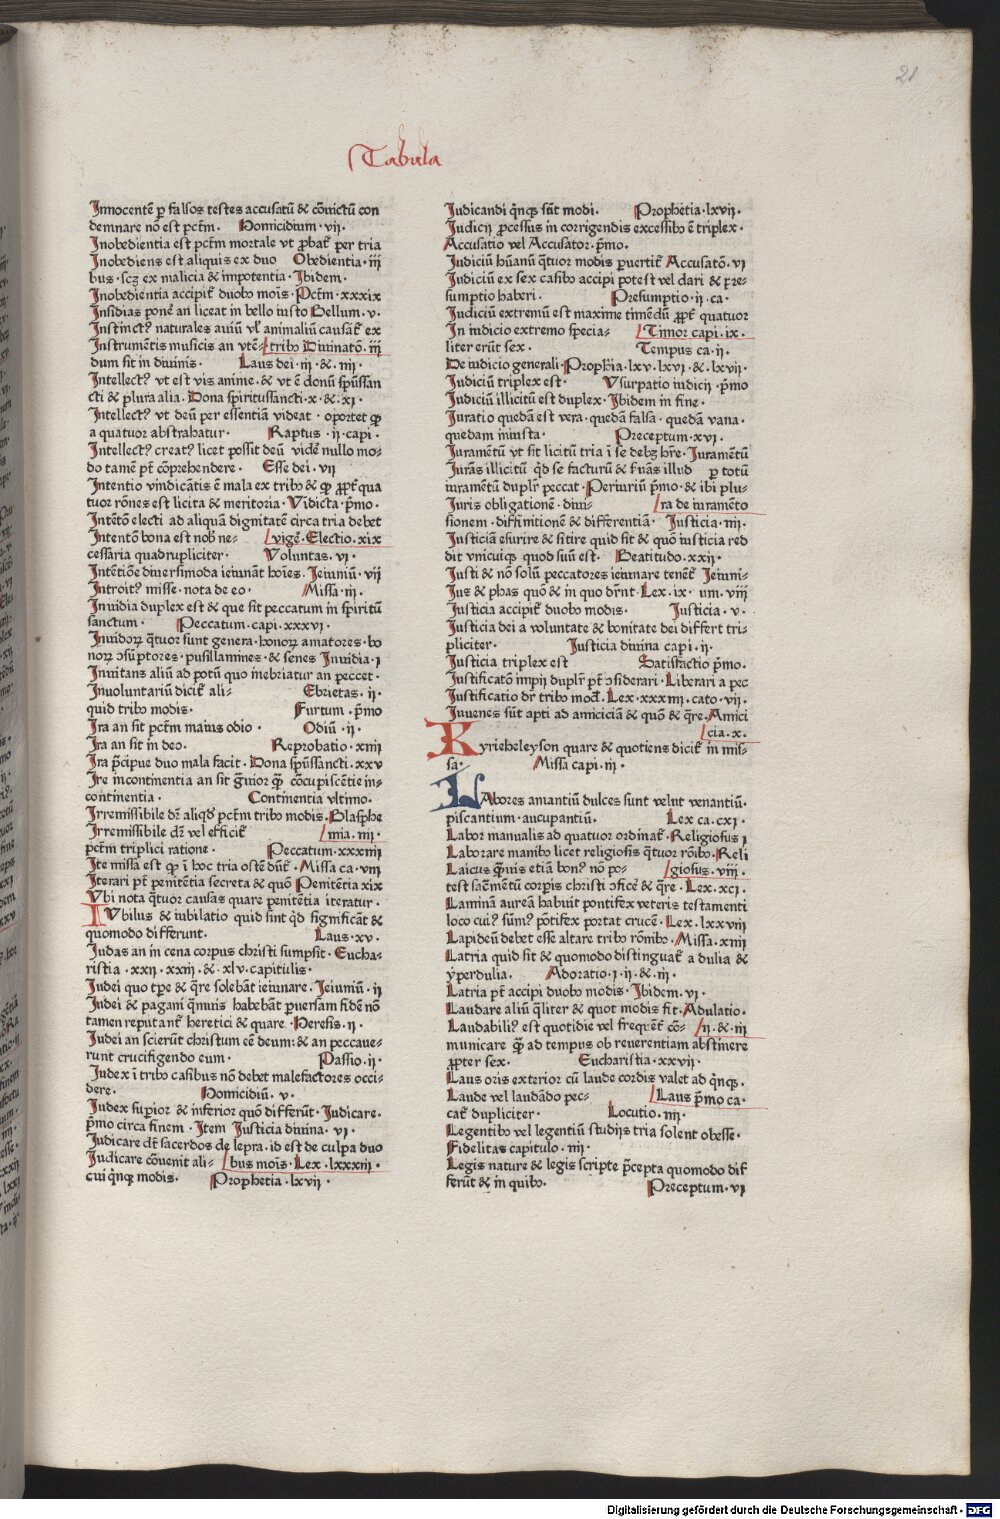 21
Tabula
Innocentē ꝑ falsos testes accusatū & cōuictū con
demnare nō est pctm̄. Homicidium · vii ·
Inobedientia est pctm̄ mortale vt ꝓbat᷑ per tria
Inobediens est aliquis ex duo Obedientia · iii
bus · scꝫ ex malicia & impotentia · Ibidem ·
Inobedientia accipit᷑ duobꝰ moīs · Pctm̄ · xxxix
Insidias pone᷑ an liceat in bello iusto Bellum · v ·
Instinctꝰ naturales auiū vl᷑ animaliū causāt᷑ ex
Instrumētis musicis an vtē- tribꝰ Diuinatō · iii
dum sit in diuinis · Laus dei · iii · & · iiii ·
Intellectꝰ vt est vis anime · & vt ē donū spūssan
cti & plura alia · Dona spiritussancti · x · & · xi ·
Intellectꝰ vt deū per essentiā videat · oportet ꝙ
a quatuor abstrahatur · Raptus · ii · capi ·
Intellectꝰ creatꝰ licet possit deū videē nullo mo-
do tamē pt̄ cōprehendere · Esse dei · vii
Intentio vindicātis ē mala ex tribꝰ & ꝙ ꝓpt᷑ qua
tuor rōnes est licita & meritoria · Vīdicta p̄mo ·
Intētō electi ad aliquā dignitatē circa tria debet
Intentō bona est nobꝭ ne- vigē · Electio · xix
cessaria quadrupliciter · Voluntas · vi ·
Intētiōe diuersimoda ieiunāt hoīes · Ieiuniū · vii
Introitꝰ misse · nota de eo · Missa · iii ·
Inuidia duplex est & que sit peccatum in spiritū
sanctum · Peccatum · capi · xxxvi ·
Inuidoꝝ q̄tuor sunt genera · honoꝝ amatores · bo
noꝝ ↄsūptores · pusillamines · & senes Inuidia · i
Inuitans aliū ad potū quo inebriatur an peccet ·
Inuoluntariū dicit᷑ ali- Ebrietas · ii ·
quid tribo modis · Furtum · p̄mo
Ira an sit pctm̄ maius odio · Odiū · ii ·
Ira an sit in deo · Reprobatio · xiiii
Ira p̄cipue duo mala facit · Dona spūssancti · xxv
Ire incontinentia an sit ḡuior ꝙ̄ cōcupiscētie in-
continentia · Continentia vltimo ·
Irremissibile dr̄ aliqd᷑ pctm̄ tribo modis · Blasphe
Irremissibile dr̄ vel efficit᷑ mia · iii ·
pctm̄ triplici ratione · Peccatum · xxxiiii
Ite missa est ꝙ ī hoc tria ostēdūt᷑ · Missa ca · viii
Iterari pt̄ penitētia secreta & quō Penitētia xix
Vbi nota q̄tuor causas quare penitētia iteratur ·
IVbilus & iubilatio quid sint q̄d significāt &
quomodo differunt · Laus · xv ·
Judas an in cena corpus christi sumpsit · Eucha-
ristia · xxii · xxiii · & · xlv · capitulis ·
Judei quo tꝑe & q̄re solebāt ieiunare · Ieiuniū · ii
Judei & pagani q̄muis habebāt ꝑuersam fidē nō
tamen reputant᷑ heretici & quare · Heresis · ii ·
Judei an scierūt christum eē deum: & an peccaue-
runt crucifigendo eum · Passio · ii ·
Judex ī tribo casibus nō debet malefactores occi-
dere · Homicidiū · v ·
Judex suꝑior & inferior quō differūt · Judicare ·
p̄mo circa finem · Item Justicia diuina · vi ·
Judicare dr̄ sacerdos de lepra · id est de culpa duo
Judicare cōuenit ali- bus moīs · Lex · lxxxiii ·
cui q̄nqꝫ modis · Prophetia · lxvii ·
Judicandi q̄nqꝫ sūt modi · Prophetia · lxvii ·
Judicij ꝓcessus in corrigendis excessibꝰ ē triplex ·
Accusatio vel Accusator · p̄mo ·
Judiciū hūanū q̄tuor modis ꝑuertit᷑ Accusatō · vi
Judiciū ex sex casibꝰ accipi potest vel dari & pre-
sumptio haberi · Presumptio · ii · ca ·
Judiciū extremū est maxime timēdū ꝓpt᷑ quatuor
In iudicio extremo specia- Timor capi · ix ·
liter erūt sex · Tempus ca · ii ·
De iudicio generali · Prophīa · lxv · lxvi & · lxvii ·
Judiciū triplex est · Vsurpatio iudicij · p̄mo
Judiciū illicitū est duplex · Ibidem in fine ·
Juratio quedā est vera · quedā falsa · quedā vana ·
quedam iniusta · Preceptum · xvi ·
Juramētū vt sit licitū tria ī se debꝫ hr̄e · Juramētū
Jurās illicitū q̄d se facturū & s᷑uās illud ꝑ totū
iuramētū duplr᷑ peccat · Periuriū p̄mo · & ibi plu-
Juris obligationē · diui- ra de iuramēto
sionem · diffinitionē & differentiā · Justicia · iiii ·
Justiciā esurire & sitire quid sit & quō iusticia red
dit vnicuiqꝫ quod suū est · Beatitudo · xxii ·
Justi & nō solū peccatores ieiunare tenēt᷑ Jeiuni-
Jus & phas quō & in quo dr̄nt · Lex · ix · um · viii
Justicia accipit᷑ duobꝰ modis · Justicia · v ·
Justicia dei a voluntate & bonitate dei differt tri-
pliciter · Justicia diuina capi · ii ·
Justicia triplex est Satisfactio p̄mo ·
Justificatō impij duplr᷑ pt̄ ↄsiderari · Liberari a pec
Justificatio dr̄ tribo moc᷑ · Lex · xxxiiii · cato · vii ·
Juuenes sūt apti ad amiciciā & quō & q̄re · Amici
cia · x ·
Kyrieheleyson quare & quotiens dicit᷑ in mis-
sa · Missa capi · iii ·
LAbores amantiū dulces sunt velut venantiū ·
piscantium · aucupantiū · Lex ca · cxi ·
Labor manualis ad quatuor ordinat᷑ · Religiosus i
Laborare manibꝰ licet religiosis q̄tuor rōibꝰ · Reli
Laicus q̄muis etiā bonꝰ nō po- giosus · viii ·
test sac̄mētū corpis christi ↄfice᷑ & q̄re · Lex · xci ·
Laminā aureā habuit pontifex veteris testamenti
loco cuiꝰ sūmꝰ pōtifex portat crucē · Lex · lxxviii
Lapideū debet esse altare tribꝰ rōnibꝰ · Missa · xiiii
Latria quid sit & quomodo distinguat᷑ a dulia &
yꝑerdulia · Adoratio · i · ii · & · iii ·
Latria pt̄ accipi duobo modis · Ibidem · vi ·
Laudare aliū q̄liter & quot modis fit · Adulatio ·
Laudabiliꝰ est quotidie vel frequēt᷑ cō- ii · & · iii
municare ꝙ̄ ad tempus ob reuerentiam abstinere
ꝓpter sex · Eucharistia · xxvii ·
Laus oris exterior cū laude cordis valet ad q̄nqꝫ ·
Laude vel laudādo pec- Laus p̄mo ca ·
cat᷑ dupliciter · Locutio · iiii ·
Legentibꝰ vel legentiū studijs tria solent obesse ·
Fidelitas capitulo · iiii ·
Legis nature & legis scripte p̄cepta quomodo dif
ferūt & in quibꝰ · Preceptum · vi
Digitalisierung gefördert durch die Deutsche Forschungsgemeinschaft - DFG